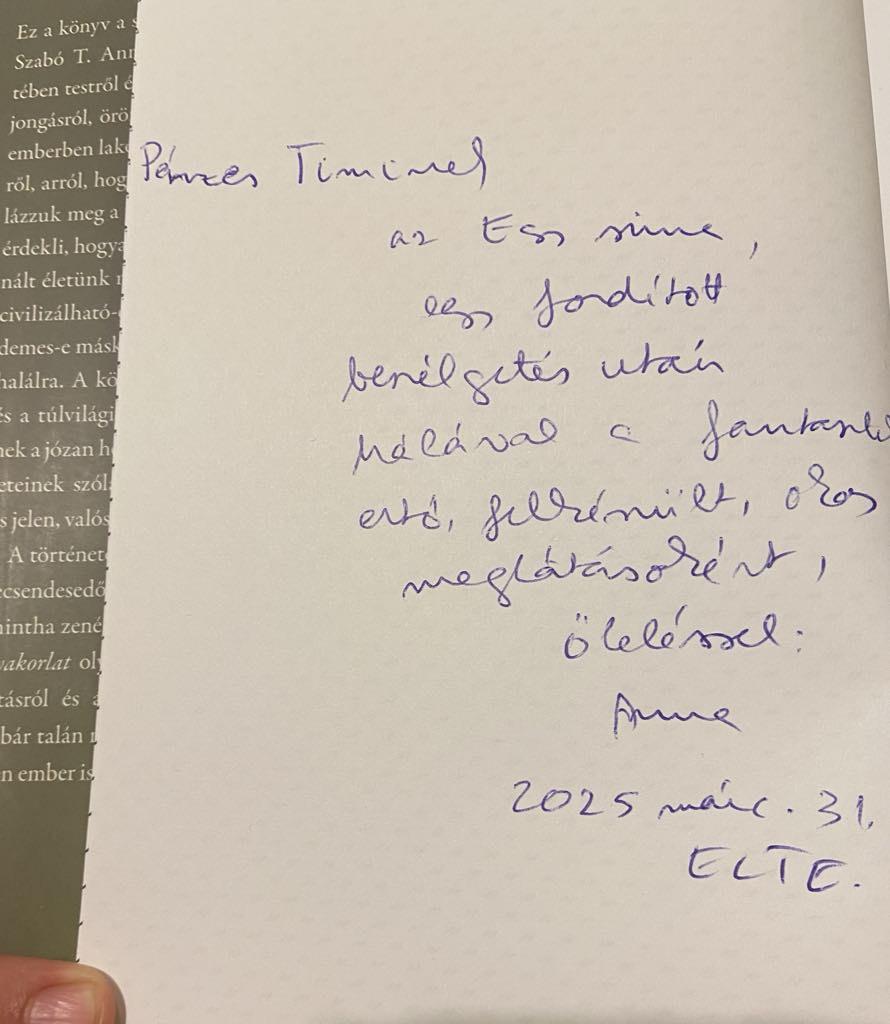 Ez a könyv a s
Szabó T. Ann
tében testről é
jongásról, örö
emberben lak
ről, arról, hog
lázzuk meg a
érdekli, hogya
nált életünk
civilizálható-
demes-e másk
halálra. A kö
és a túlvilági
nek a józan h
eteinek szól
s jelen, valós
A történet
csendesedő
mintha zené
yakorlat oly
tásról és
bár talán
n ember is
Pénzes Timinek
az Egy
egy fordított
beszélgetés után
hálával a
értő, felkészült, okos
meglátásokért,
öleléssel:
Anna
2025 márc. 31.
ELTE.